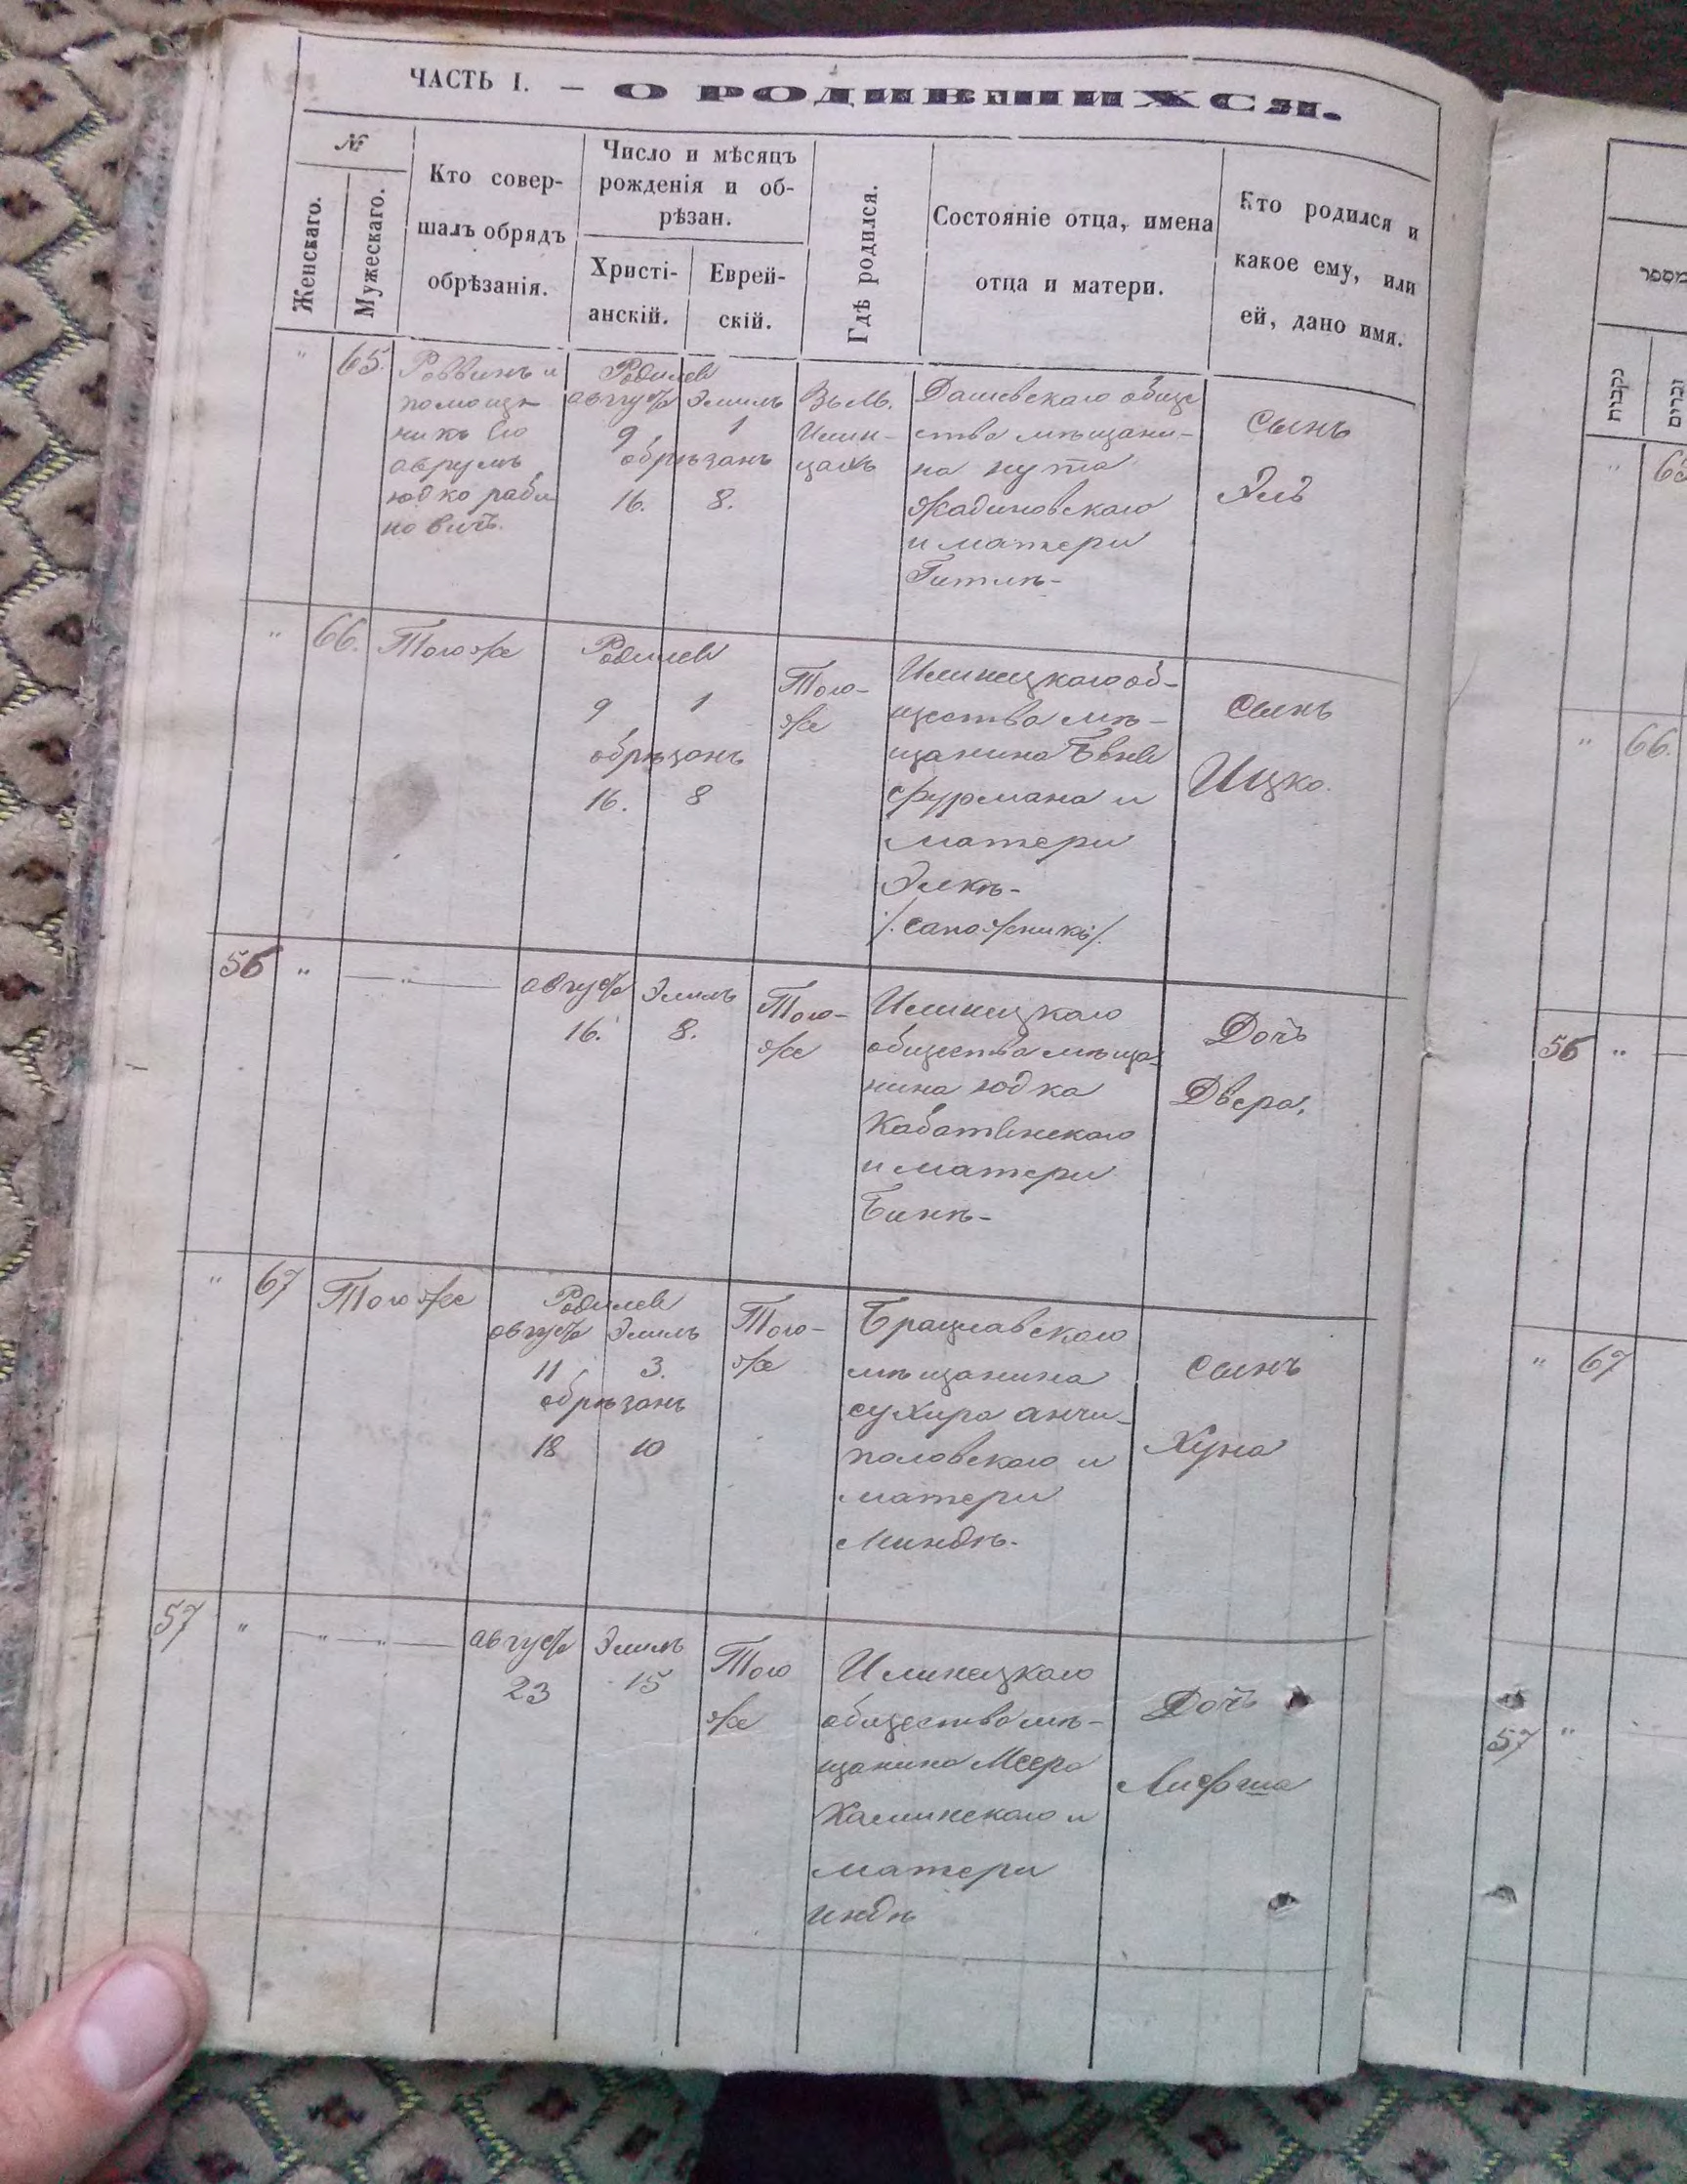 ЧАСТЬ I. — О РОДИВШИХСЯ.
№
Женскаго.
Мужескаго.
Кто совер-
шалъ обрядъ
обрѣзанія.
Число и мѣсяцъ
рожденія и об-
рѣзан.
Христі-
анскій.
Еврей-
скій.
Гдѣ родился.
Состояніе отца, имена
отца и матери.
Кто родился и
какое ему, или
ей, дано имя.
" 65.
Раввинъ и
помощн
никъ его
аврумъ
юдко раби
новичъ.
Родился
августа Элилъ
9 1
обрѣзанъ
16. 8.
Въ м.
Илин-
цахъ
Дашевскаго обще
ства мѣщани-
на нута
Жадановскаго
и матери
Гитлѣ-
сынъ
Элъ
" 66.
Тогоже
Родился
9 1
обрѣзанъ
16. 8
Того-
же
Илинецкаго об-
щества мѣ-
щанина Бене
Фурмана и
матери
Элкѣ-
/. сапожникъ /.
сынъ
Ицко.
56 " — " —
августа Элилъ
16. 8.
Того-
же
Илинецкаго
общества мѣща-
нина юдка
Кабатенскаго
и матери
Бинѣ-
Дочь
Двера.
" 67
Того же
Родился
августа Элилъ
11 3.
обрѣзанъ
18 10
Того-
же
Брацлавскаго
мѣщанина
сухира анчи-
половскаго и
матери
Миндѣ.
сынъ
Хуна
57 " — " — " —
августа Элилъ
23 15
Того
же
Илинецкаго
общества мѣ-
щанина Меера
Каминскаго и
матери
Индѣ
Дочь
Лифша
מספר
נקבות
זכרים
" 65
" 66.
56 "
" 67
57 "